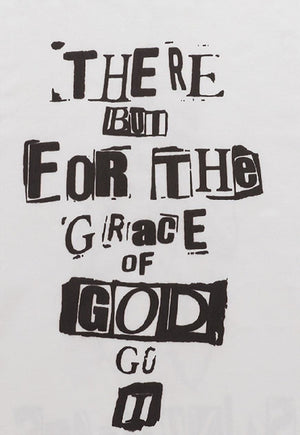 THERE
BUT
FOR THe
GRaCE
OF
GOD
GO
I